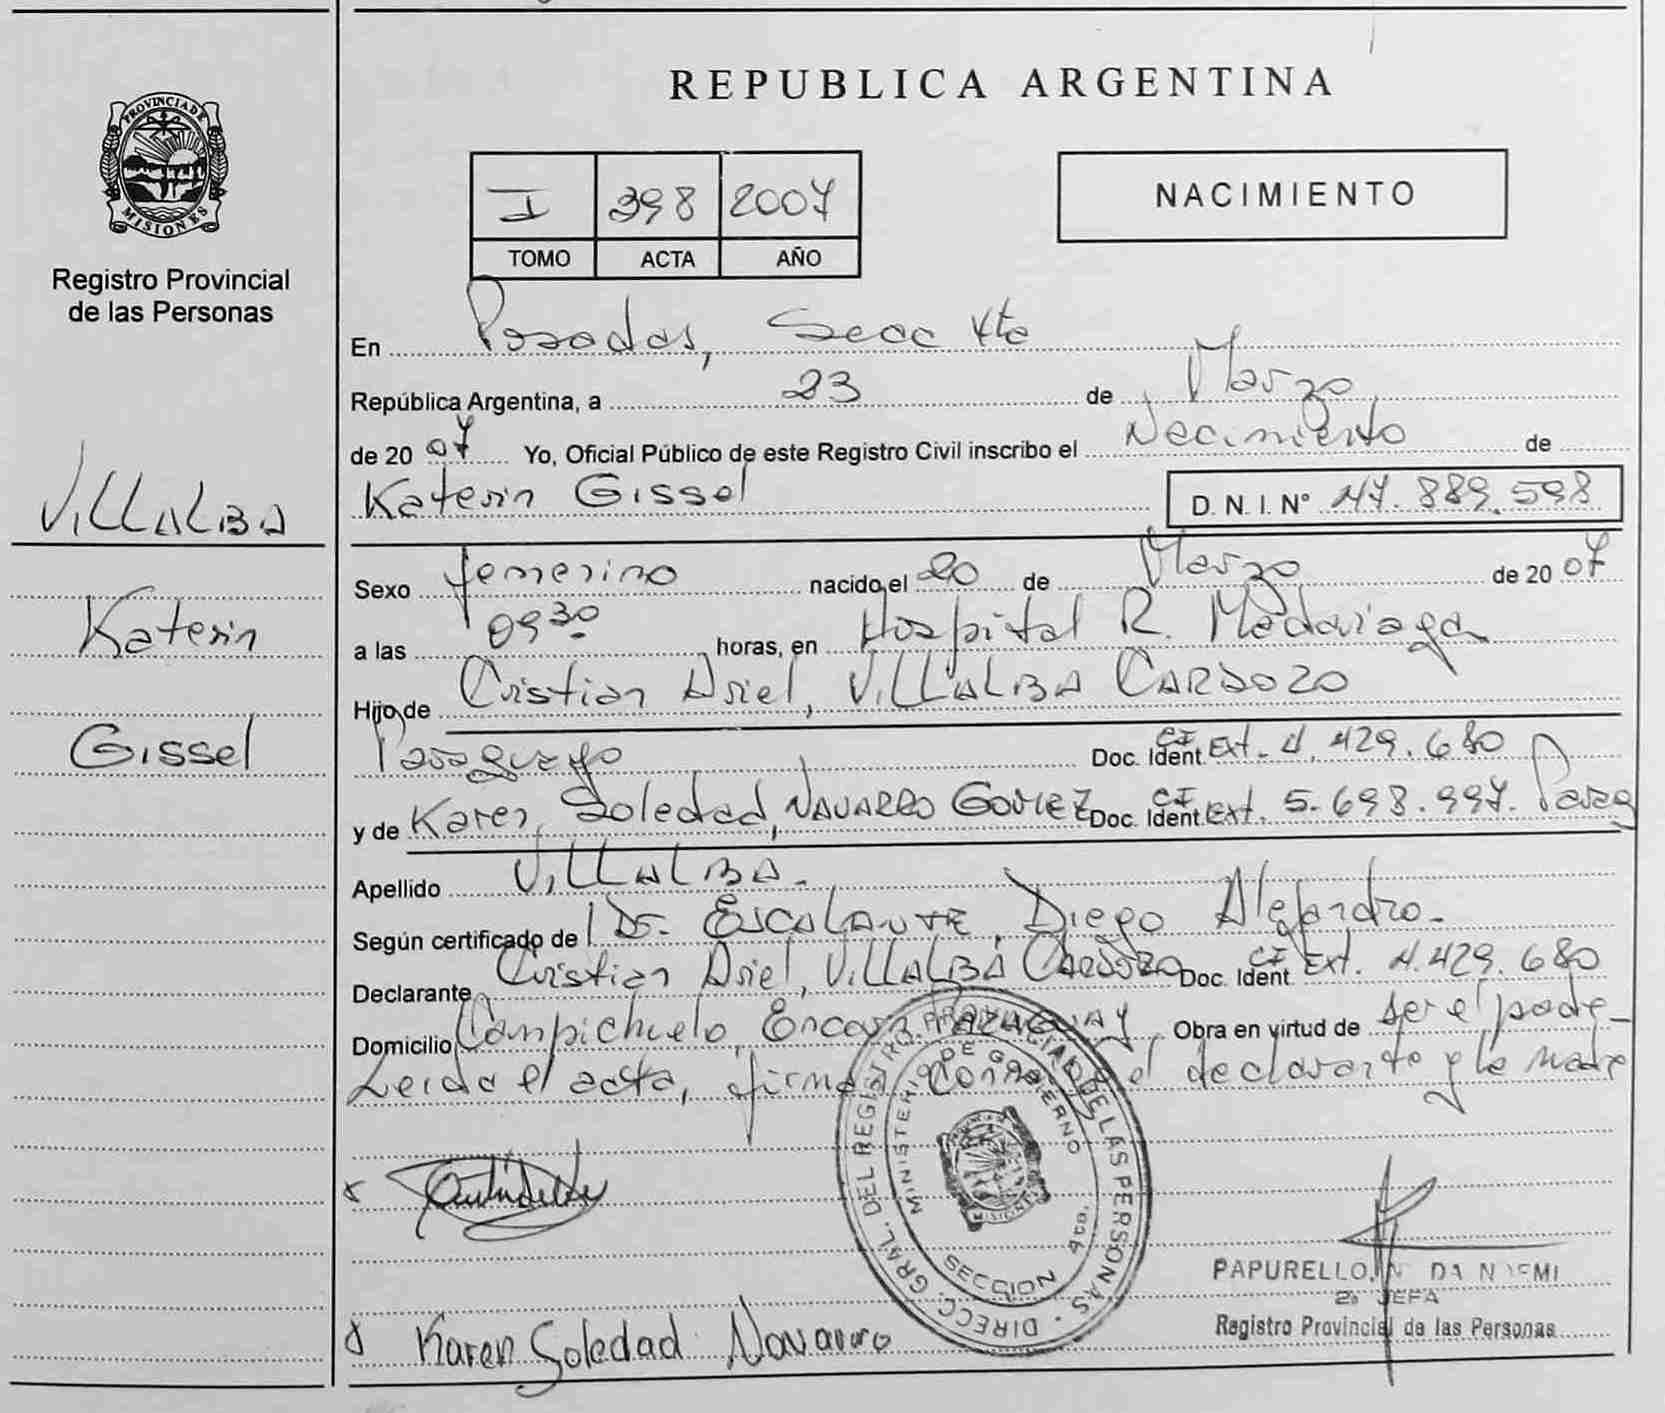 PROVINCIA DE
MISIONES
Registro Provincial
de las Personas
VILLALBA
Katerin
Gissel
REPUBLICA ARGENTINA
I 398 2007
TOMO ACTA AÑO
NACIMIENTO
En Posadas, Secc 4ta
República Argentina, a 23 de Marzo
de 2007 Yo, Oficial Público de este Registro Civil inscribo el Nacimiento de
Katerin Gissel D. N. I. Nº 47.889.598
Sexo femenino nacido el 20 de Marzo de 2007
a las 09 30 horas, en Hospital R. Madariaga
Hijo de Cristian Ariel, VILLALBA CARDOZO
Paraguayo Doc. Ident. CI Ext. 4.429.680
y de Karen Soledad, NAVARRO GOMEZ Doc. Ident. CI Ext. 5.698.997. Parag
Apellido VILLALBA.
Según certificado de Dr. ESCALANTE, Diego Alejandro.
Declarante Cristian Ariel, VILLALBA CARDOZO Doc. Ident. CI Ext. 4.429.680
Domicilio Campichuelo, Encarn. PARAGUAY Obra en virtud de ser el padre
Leida el acta, firman conmigo el declarante y la madre
DIRECC. GRAL. DEL REGISTRO PROVINCIAL DE LAS PERSONAS
MINISTERIO DE GOBIERNO
MISIONES
SECCION 4ta.
x
x Karen Soledad Navarro
PAPURELLO, DA NOEMI
2a JEFA
Registro Provincial de las Personas